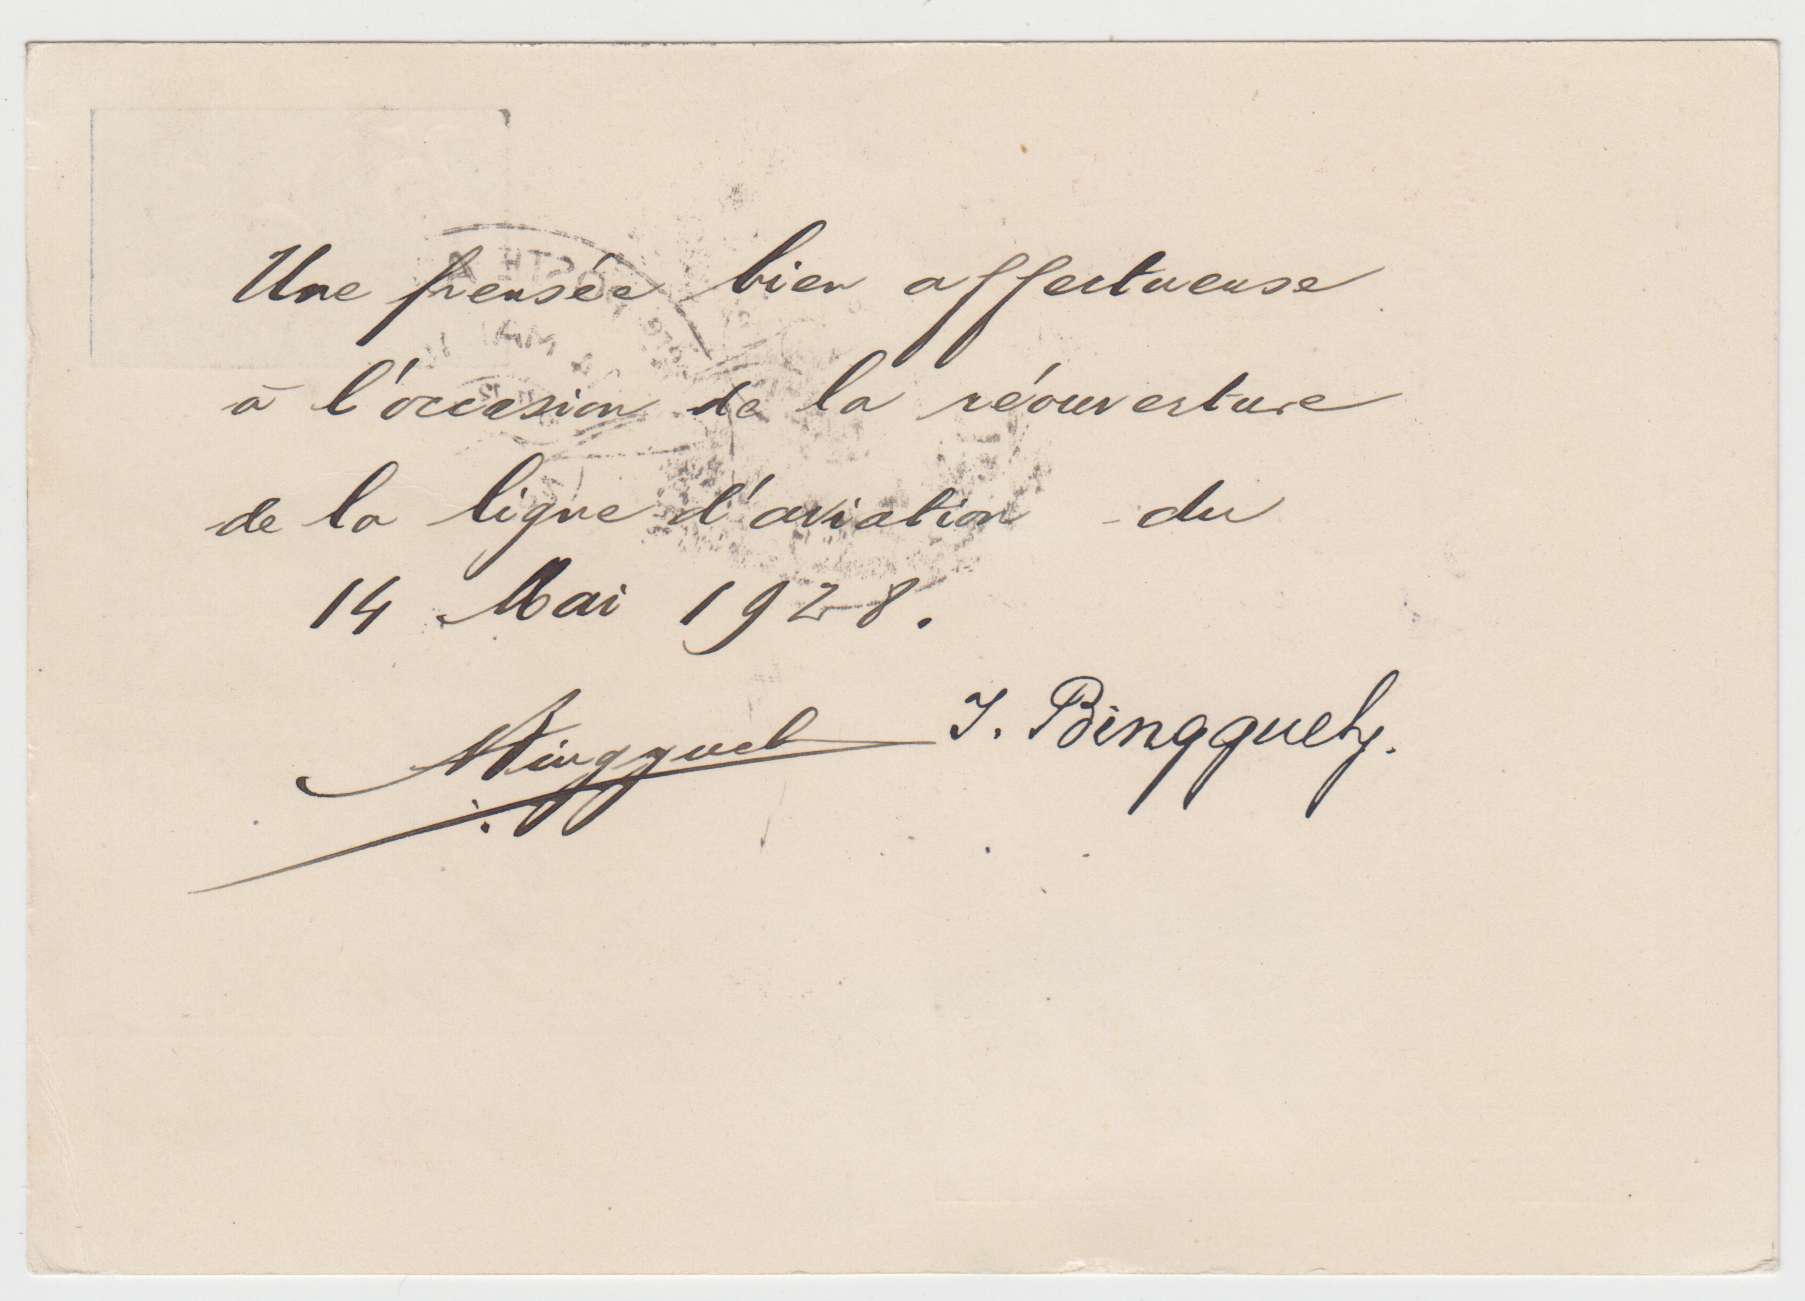 Une pensée bien affectueuse
à l'occasion de la réouverture
de la ligne d'aviation du
14 Mai 1928.
J. Bingguely.